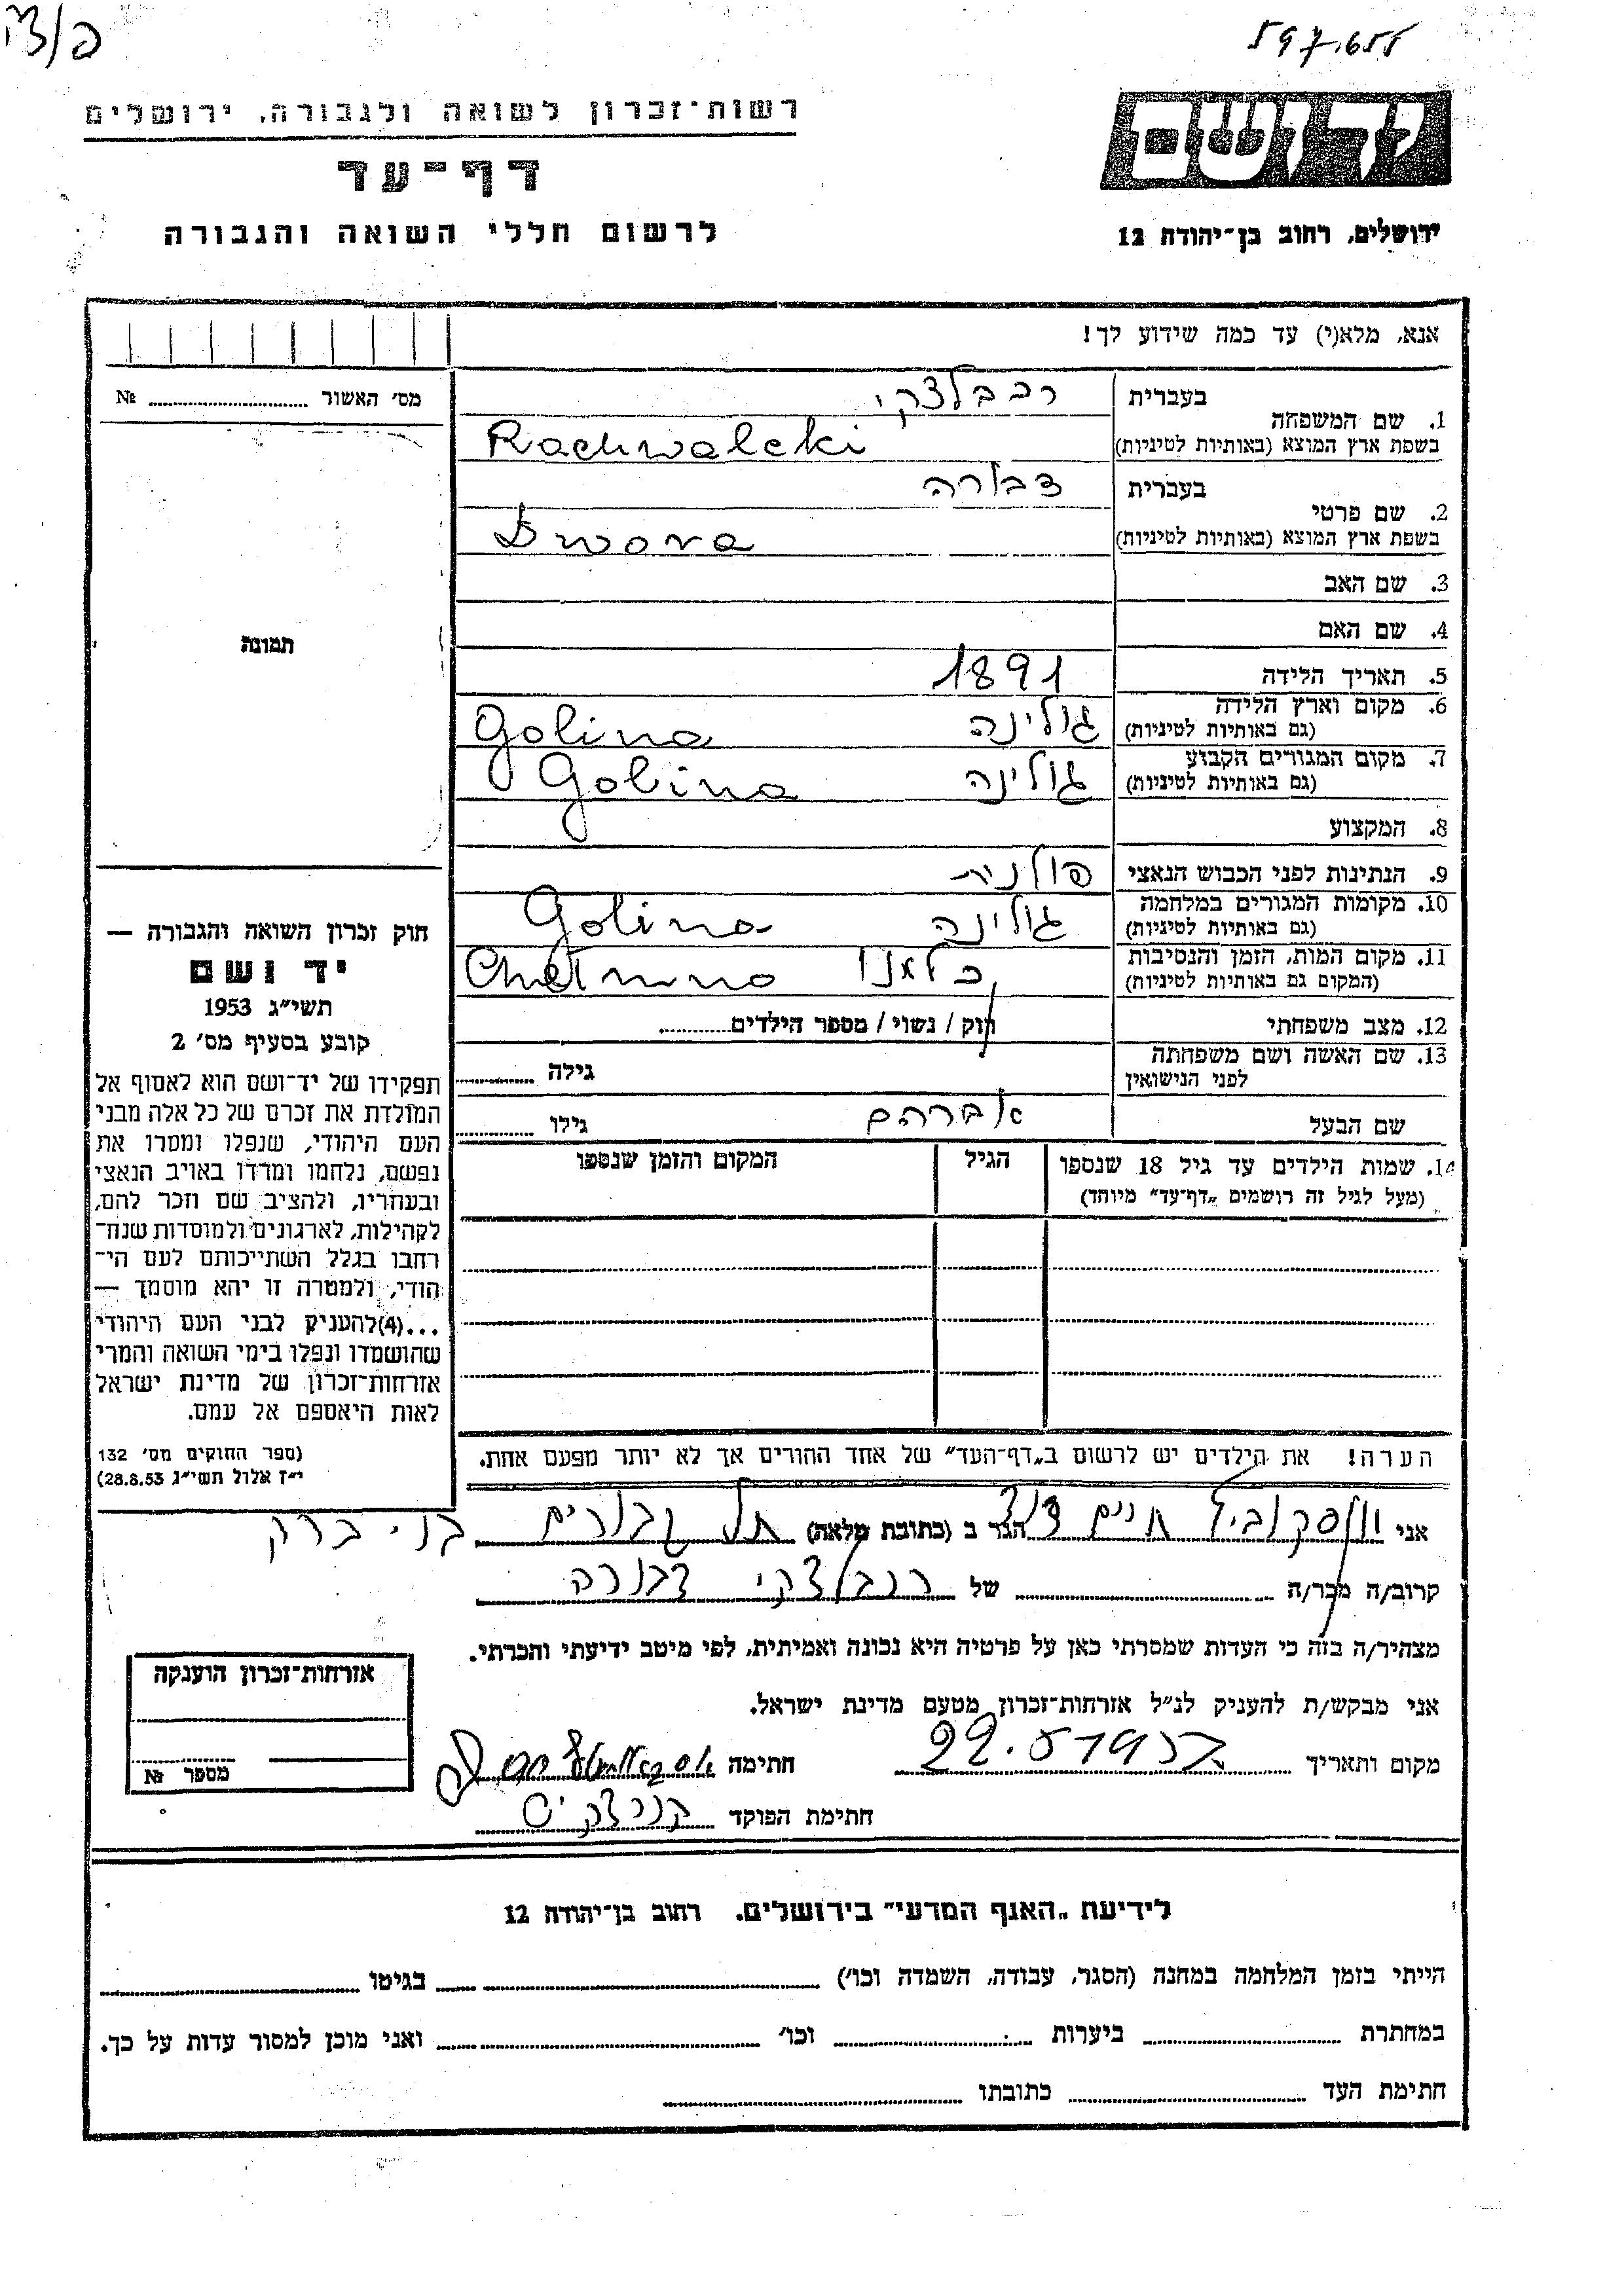 597,655
רשות-זכרון לשואה ולגבורה, ירושלים
דף-עד
לרשום חללי השואה והגבורה
ידושם
ירושלים, רחוב בן-יהודה 12
אנא, מלא(י) עד כמה שידוע לך!
מס׳ האשור № 
תמונה
1. שם המשפחה
בעברית רכבלצקי
בשפת ארץ המוצא (באותיות לטיניות) Rachwalcki
2. שם פרטי
בעברית דבורה
בשפת ארץ המוצא (באותיות לטיניות) Dwora
3. שם האב
4. שם האם
5. תאריך הלידה 1891
6. מקום וארץ הלידה
(גם באותיות לטיניות) גולינה Golina
7. מקום המגורים הקבוע
(גם באותיות לטיניות) גולינה Golina
8. המקצוע
9. הנתינות לפני הכבוש הנאצי פולנית
10. מקומות המגורים במלחמה
(גם באותיות לטיניות) גולינה Golina
11. מקום המות, הזמן והנסיבות
(המקום גם באותיות לטיניות) כלמנו Chelmno
12. מצב משפחתי רוק / נשוי / מספר הילדים
13. שם האשה ושם משפחתה
לפני הנישואין גילה
שם הבעל אברהם גילו
14. שמות הילדים עד גיל 18 שנספו הגיל המקום והזמן שנספו
(מעל לגיל זה רושמים „דף-עד״ מיוחד)
הערה! את הילדים יש לרשום ב„דף-העד״ של אחד ההורים אך לא יותר מפעם אחת.
חוק זכרון השואה והגבורה —
יד ושם
תשי״ג 1953
קובע בסעיף מס׳ 2
תפקידו של יד-ושם הוא לאסוף אל
המולדת את זכרם של כל אלה מבני
העם היהודי, שנפלו ומסרו את
נפשם, נלחמו ומרדו באויב הנאצי
ובעוזריו, ולהציב שם וזכר להם,
לקהילות, לארגונים ולמוסדות שנח-
רחבו בגלל השתייכותם לעם הי-
הודי, ולמטרה זו יהא מוסמך —
...(4)להעניק לבני העם היהודי
שהושמדו ונפלו בימי השואה והמרי
אזרחות-זכרון של מדינת ישראל
לאות היאספם אל עמם.
(ספר החוקים מס׳ 132
י״ז אלול תשי״ג 28.8.53)
אני חיים דוד הגר ב (כתובת מלאה) תל גבורים בני ברק
קרוב/ה מכר/ה של רכבלצקי דבורה
מצהיר/ה בזה כי העדות שמסרתי כאן על פרטיה היא נכונה ואמיתית, לפי מיטב ידיעתי והכרתי.
אני מבקש/ת להעניק לנ״ל אזרחות-זכרון מטעם מדינת ישראל.
מקום ותאריך חתימה
חתימת הפוקד
אזרחות-זכרון הוענקה
מספר №
לידיעת „האגף המדעי״ בירושלים. רחוב בן-יהודה 12
הייתי בזמן המלחמה במחנה (הסגר, עבודה, השמדה וכו׳) בגיטו
במחתרת ביערות וכו׳ ואני מוכן למסור עדות על כך.
חתימת העד כתובתו